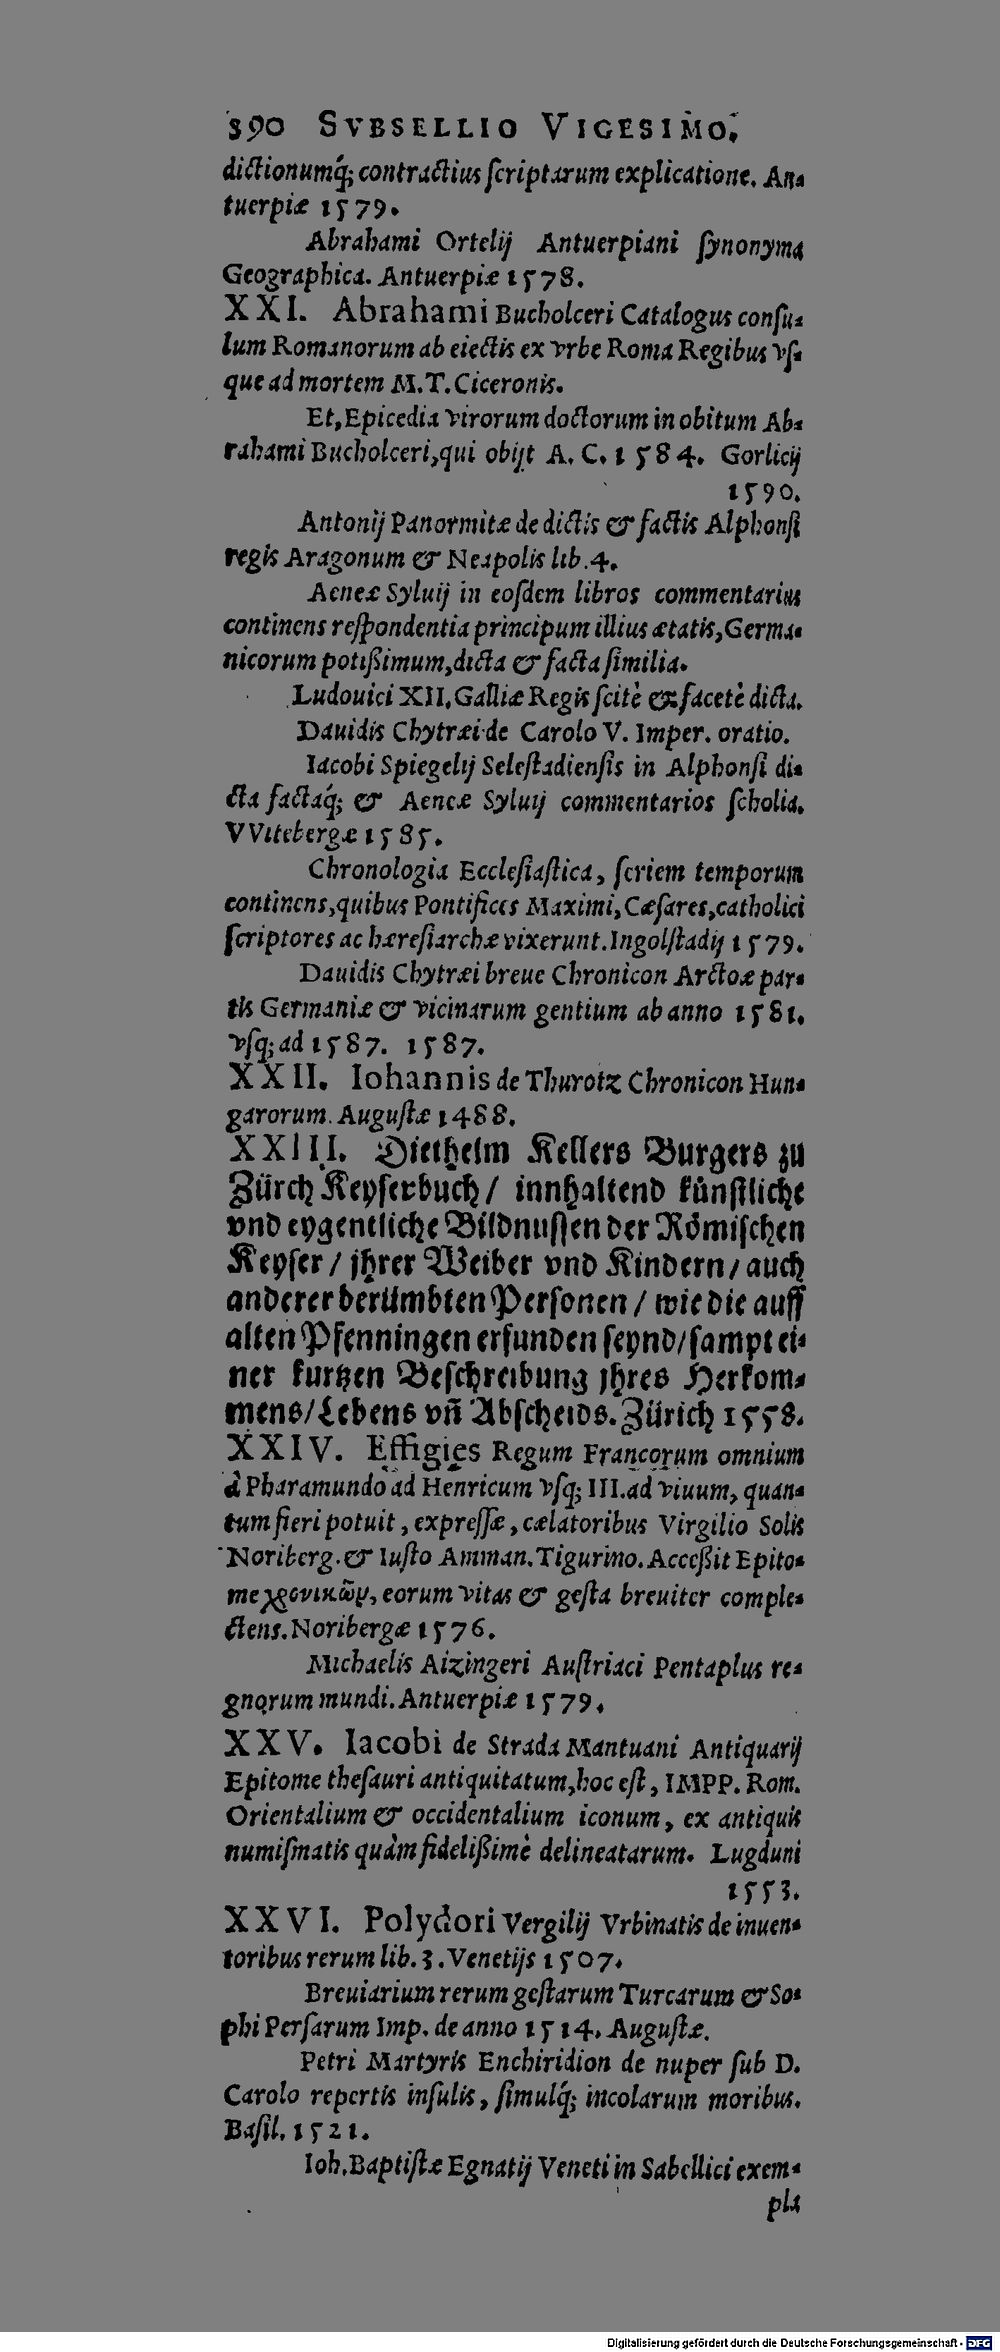 390 SVBSELLIO VIGESIMO.
dictionumq́; contractius ſcriptarum explicatione. An-
tuerpiæ 1579.
Abrahami Ortelij Antuerpiani ſynonyma
Geographica. Antuerpiæ 1578.
XXI. Abrahami Bucholceri Catalogus conſu-
lum Romanorum ab eiectis ex vrbe Roma Regibus vſ-
que ad mortem M.T.Ciceronis.
Et, Epicedia virorum doctorum in obitum Ab-
rahami Bucholceri, qui obijt A. C. 1584. Gorlicij
1590.
Antonij Panormitæ de dictis & factis Alphonſi
regis Aragonum & Neapolis lib.4.
Aeneæ Syluij in eoſdem libros commentarius
continens reſpondentia principum illius ætatis, Germa-
nicorum potißimum, dicta & facta ſimilia.
Ludouici XII. Galliæ Regis ſcitè & facetè dicta.
Dauidis Chytræi de Carolo V. Imper. oratio.
Iacobi Spiegelij Seleſtadienſis in Alphonſi di-
cta factaq́; & Aeneæ Syluij commentarios ſcholia.
VVitebergæ 1585.
Chronologia Eccleſiaſtica, ſeriem temporum
continens, quibus Pontifices Maximi, Cæſares, catholici
ſcriptores ac hæreſiarchæ vixerunt. Ingolſtadij 1579.
Dauidis Chytræi breue Chronicon Arctoæ par-
tis Germaniæ & vicinarum gentium ab anno 1581.
vſq; ad 1587. 1587.
XXII. Iohannis de Thurotz Chronicon Hun-
garorum. Auguſtæ 1488.
XXIII. Diethelm Kellers Burgers zu
Zürch Keyſerbuch / innhaltend künſtliche
vnd eygentliche Bildnuſſen der Römiſchen
Keyſer / jhrer Weiber vnd Kindern / auch
anderer berümbten Perſonen / wie die auff
alten Pfenningen erfunden ſeynd / ſampt ei-
ner kurtzen Beſchreibung jhres Herkom-
mens / Lebens vñ Abſcheids. Zürich 1558.
XXIV. Effigies Regum Francorum omnium
à Pharamundo ad Henricum vſq; III. ad viuum, quan-
tum fieri potuit, expreſſæ, cælatoribus Virgilio Solis
Noriberg. & Iuſto Amman. Tigurino. Acceßit Epito-
me χρονικῶν, eorum vitas & geſta breuiter comple-
ctens. Noribergæ 1576.
Michaelis Aizingeri Auſtriaci Pentaplus re-
gnorum mundi. Antuerpiæ 1579.
XXV. Iacobi de Strada Mantuani Antiquarij
Epitome theſauri antiquitatum, hoc eſt, IMPP. Rom.
Orientalium & occidentalium iconum, ex antiquis
numiſmatis quàm fidelißimè delineatarum. Lugduni
1553.
XXVI. Polydori Vergilij Vrbinatis de inuen-
toribus rerum lib.3. Venetijs 1507.
Breuiarium rerum geſtarum Turcarum & So-
phi Perſarum Imp. de anno 1514. Auguſtæ.
Petri Martyris Enchiridion de nuper ſub D.
Carolo repertis inſulis, ſimulq́; incolarum moribus.
Baſil. 1521.
Ioh. Baptiſtæ Egnatij Veneti in Sabellici exem-
pla
Digitalisierung gefördert durch die Deutsche Forschungsgemeinschaft - DFG